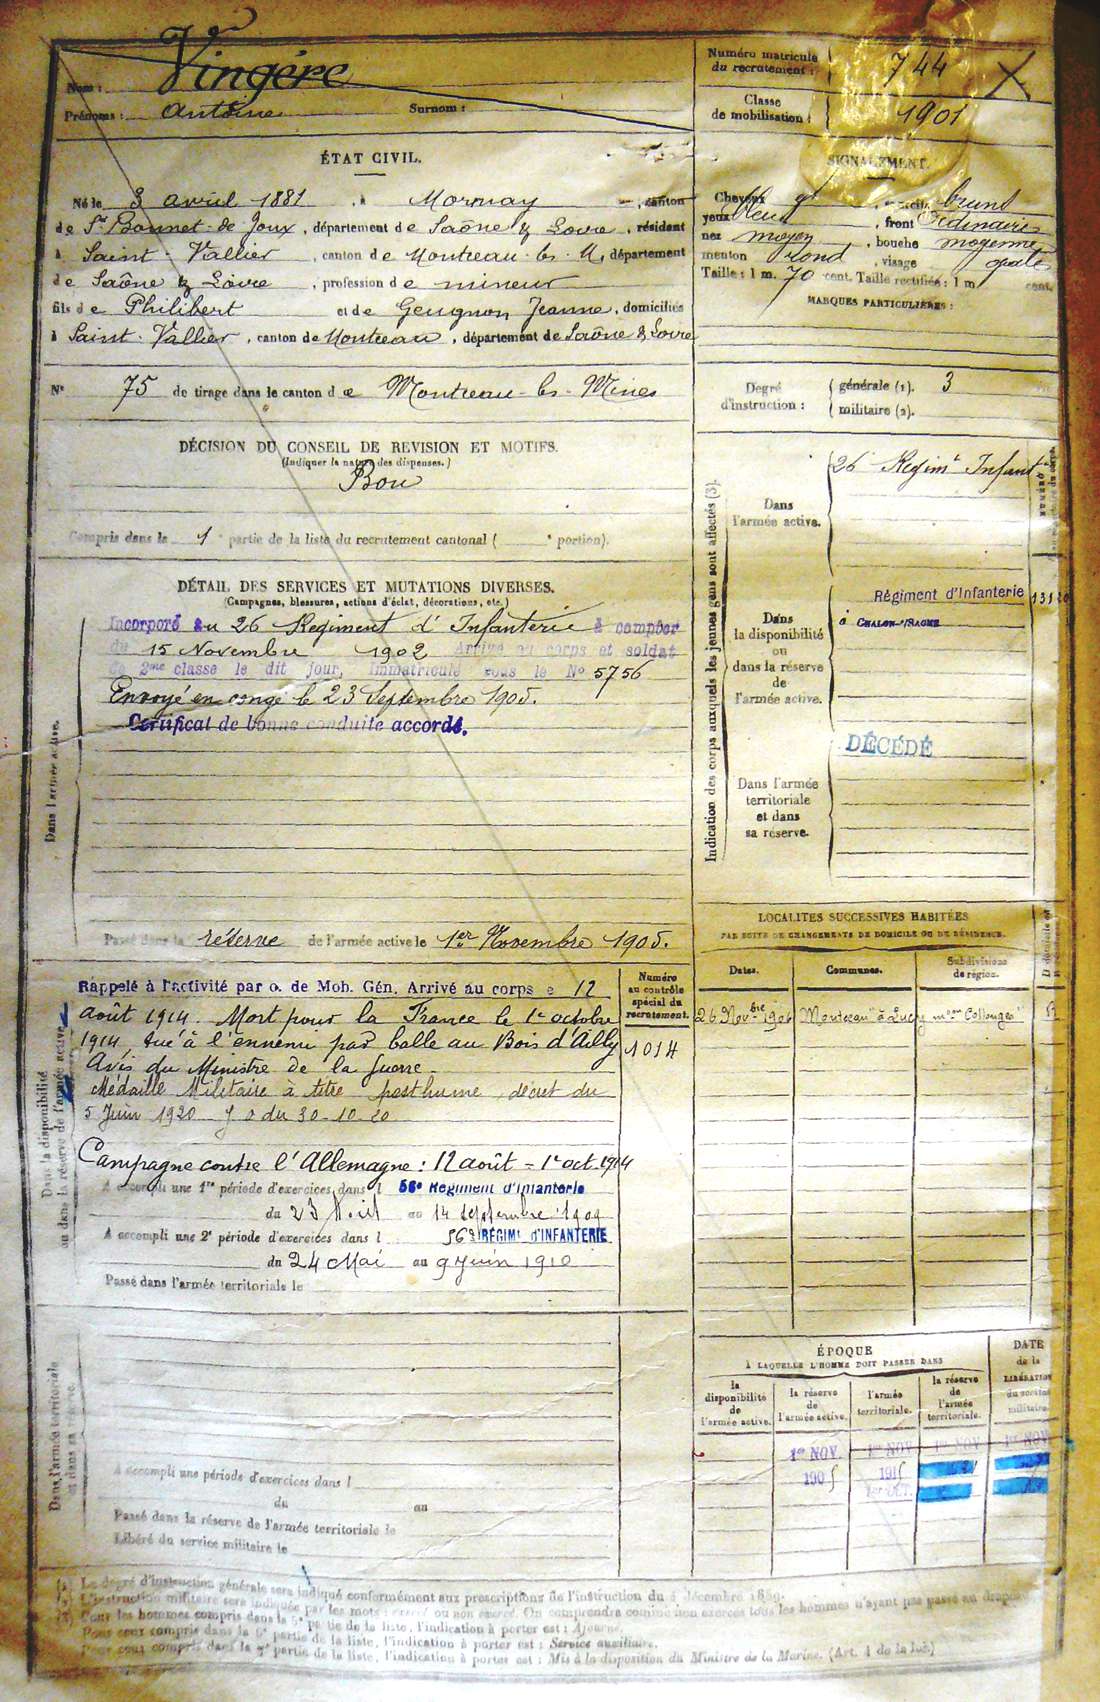 Nom : Vingére
Prénoms : Antoine Surnom :
Numéro matricule du recrutement : 744
Classe de mobilisation : 1901
ÉTAT CIVIL.
Né le 3 avril 1881, à Mornay, canton
de St Bonnet-de Joux, département de Saône & Loire, résident
à Saint-Vallier, canton de Montceau-les-M, département
de Saône & Loire, profession de mineur
fils de Philibert et de Geugnon Jeanne, domiciliés
à Saint-Vallier, canton de Montceau, département de Saône & Loire
SIGNALEMENT.
Cheveux et sourcils bruns
yeux bleus, front Ordinaire
nez moyen, bouche moyenne
menton rond, visage ovale
Taille : 1 m. 70 cent. Taille rectifiée : 1 m cent.
MARQUES PARTICULIÈRES :
N° 75 de tirage dans le canton de Montceau-les-Mines
Degré d'instruction :
générale (1). 3
militaire (2).
DÉCISION DU CONSEIL DE REVISION ET MOTIFS.
(Indiquer la nature des dispenses.)
Bon
Compris dans la 1e partie de la liste du recrutement cantonal ( e portion).
DÉTAIL DES SERVICES ET MUTATIONS DIVERSES.
(Campagnes, blessures, actions d'éclat, décorations, etc.)
Dans l'armée active.
Incorporé au 26 Regiment d'Infanterie à compter
du 15 Novembre 1902 Arrivé au corps et soldat
de 2me classe le dit jour, Immatriculé sous le No 5756
Envoyé en congé le 23 Septembre 1905.
Certificat de bonne conduite accordé.
Passé dans la réserve de l'armée active le 1er Novembre 1905.
Indication des corps auxquels les jeunes gens sont affectés (3).
Dans l'armée active.
26e Regimt Infant
Dans la disponibilité ou dans la réserve de l'armée active.
Régiment d'Infanterie
à CHALON-s/SAONE
Dans l'armée territoriale et dans sa réserve.
DÉCÉDÉ
Dans la disponibilité ou dans la réserve de l'armée active
Rappelé à l'activité par o. de Mob. Gén. Arrivé au corps e 12
août 1914. Mort pour la France le 1er octobre
1914, tué à l'ennemi par balle au Bois d'Ailly
Avis du Ministre de la Guerre.
Médaille Militaire à titre posthume décret du
5 Juin 1920 J. O du 30-10-20
Campagne contre l'Allemagne : 12 août = 1er oct. 1914
A accompli une 1re période d'exercices dans l 56e Régiment d'Infanterie
du 23 Août au 14 septembre 1909
A accompli une 2e période d'exercices dans l 56e RÉGIMt D'INFANTERIE
du 24 Mai au 9 Juin 1910
Passé dans l'armée territoriale le
Numéro au contrôle spécial du recrutement.
1014
LOCALITÉS SUCCESSIVES HABITÉES
PAR SUITE DE CHANGEMENTS DE DOMICILE OU DE RÉSIDENCE.
Dates. Communes. Subdivisions de région.
26 Novbre 1906 Montceau à Lucy mon Collonges
Dans l'armée territoriale et dans sa réserve.
A accompli une période d'exercices dans l
du au
Passé dans la réserve de l'armée territoriale le
Libéré du service militaire le
ÉPOQUE
À LAQUELLE L'HOMME DOIT PASSER DANS
la disponibilité de l'armée active.
la réserve de l'armée active.
l'armée territoriale.
la réserve de l'armée territoriale.
DATE de la LIBÉRATION du service militaire.
1er NOV. 1er NOV 1er NOV 1er NOV
1905 1915
1er OCT.
(1) Le degré d'instruction générale sera indiqué conformément aux prescriptions de l'instruction du 4 décembre 1889.
(2) L'instruction militaire sera indiquée par les mots : exercé ou non exercé. On comprendra comme non exercés tous les hommes n'ayant pas passé au drapeau.
(3) Pour les hommes compris dans la 5e partie de la liste, l'indication à porter est : Ajourné.
Pour ceux compris dans la 6e partie de la liste, l'indication à porter est : Service auxiliaire.
Pour ceux compris dans la 7e partie de la liste, l'indication à porter est : Mis à la disposition du Ministre de la Marine. (Art. 4 de la loi.)